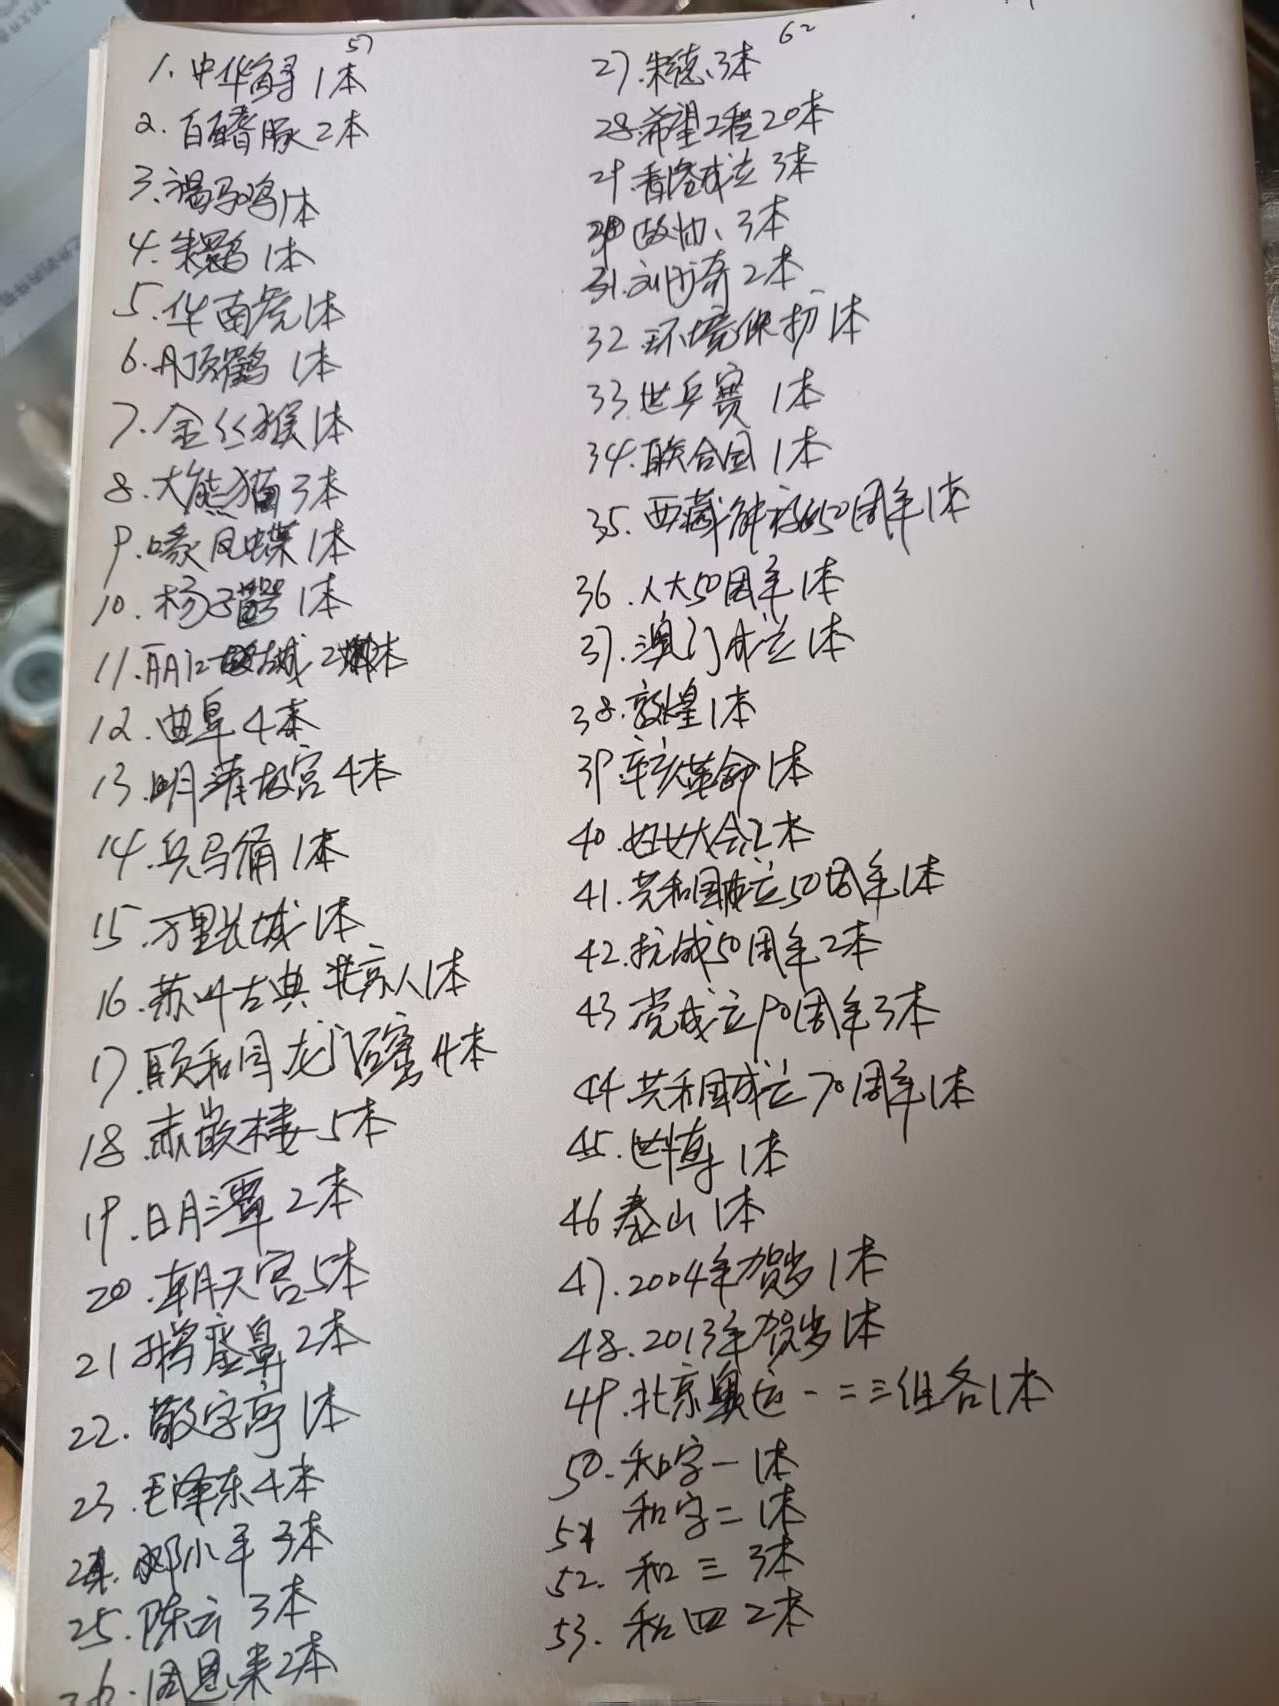 57
1.中华鲟1本
2.白暨豚2本
3.褐马鸡1本
4.朱鹮1本
5.华南虎1本
6.丹顶鹤1本
7.金丝猴1本
8.大熊猫3本
9.喙凤蝶1本
10.杨子鳄1本
11.丽江古城2本
12.曲阜4本
13.明清故宫4本
14.兵马俑1本
15.万里长城1本
16.苏州古典 北京人1本
17.颐和园龙门石窟4本
18.赤嵌楼5本
19.日月潭2本
20.朝天宫5本
21鹅銮鼻2本
22.敬字亭1本
23.毛泽东4本
24.邓小平3本
25.陈云3本
26.周恩来2本
62
27.朱德3本
28希望工程20本
29香港成立3本
30政协、3本
31.刘少奇2本
32环境保护1本
33.世乒赛1本
34.联合国1本
35.西藏解放50周年1本
36.人大50周年1本
37.澳门成立1本
38.敦煌1本
39辛亥革命1本
40.妇女大会2本
41.共和国成立50周年1本
42.抗战50周年2本
43党成立90周年3本
44.共和国成立70周年1本
45.世博1本
46泰山1本
47.2004年贺岁1本
48.2013年贺岁1本
49.北京奥运一二三组各1本
50.和字一1本
51和字二1本
52.和三3本
53.和四2本